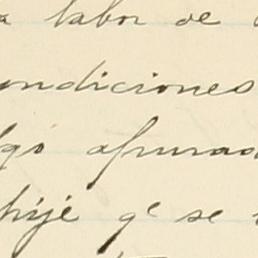 a labor de
ondiciones
algo apurad
hije qe se